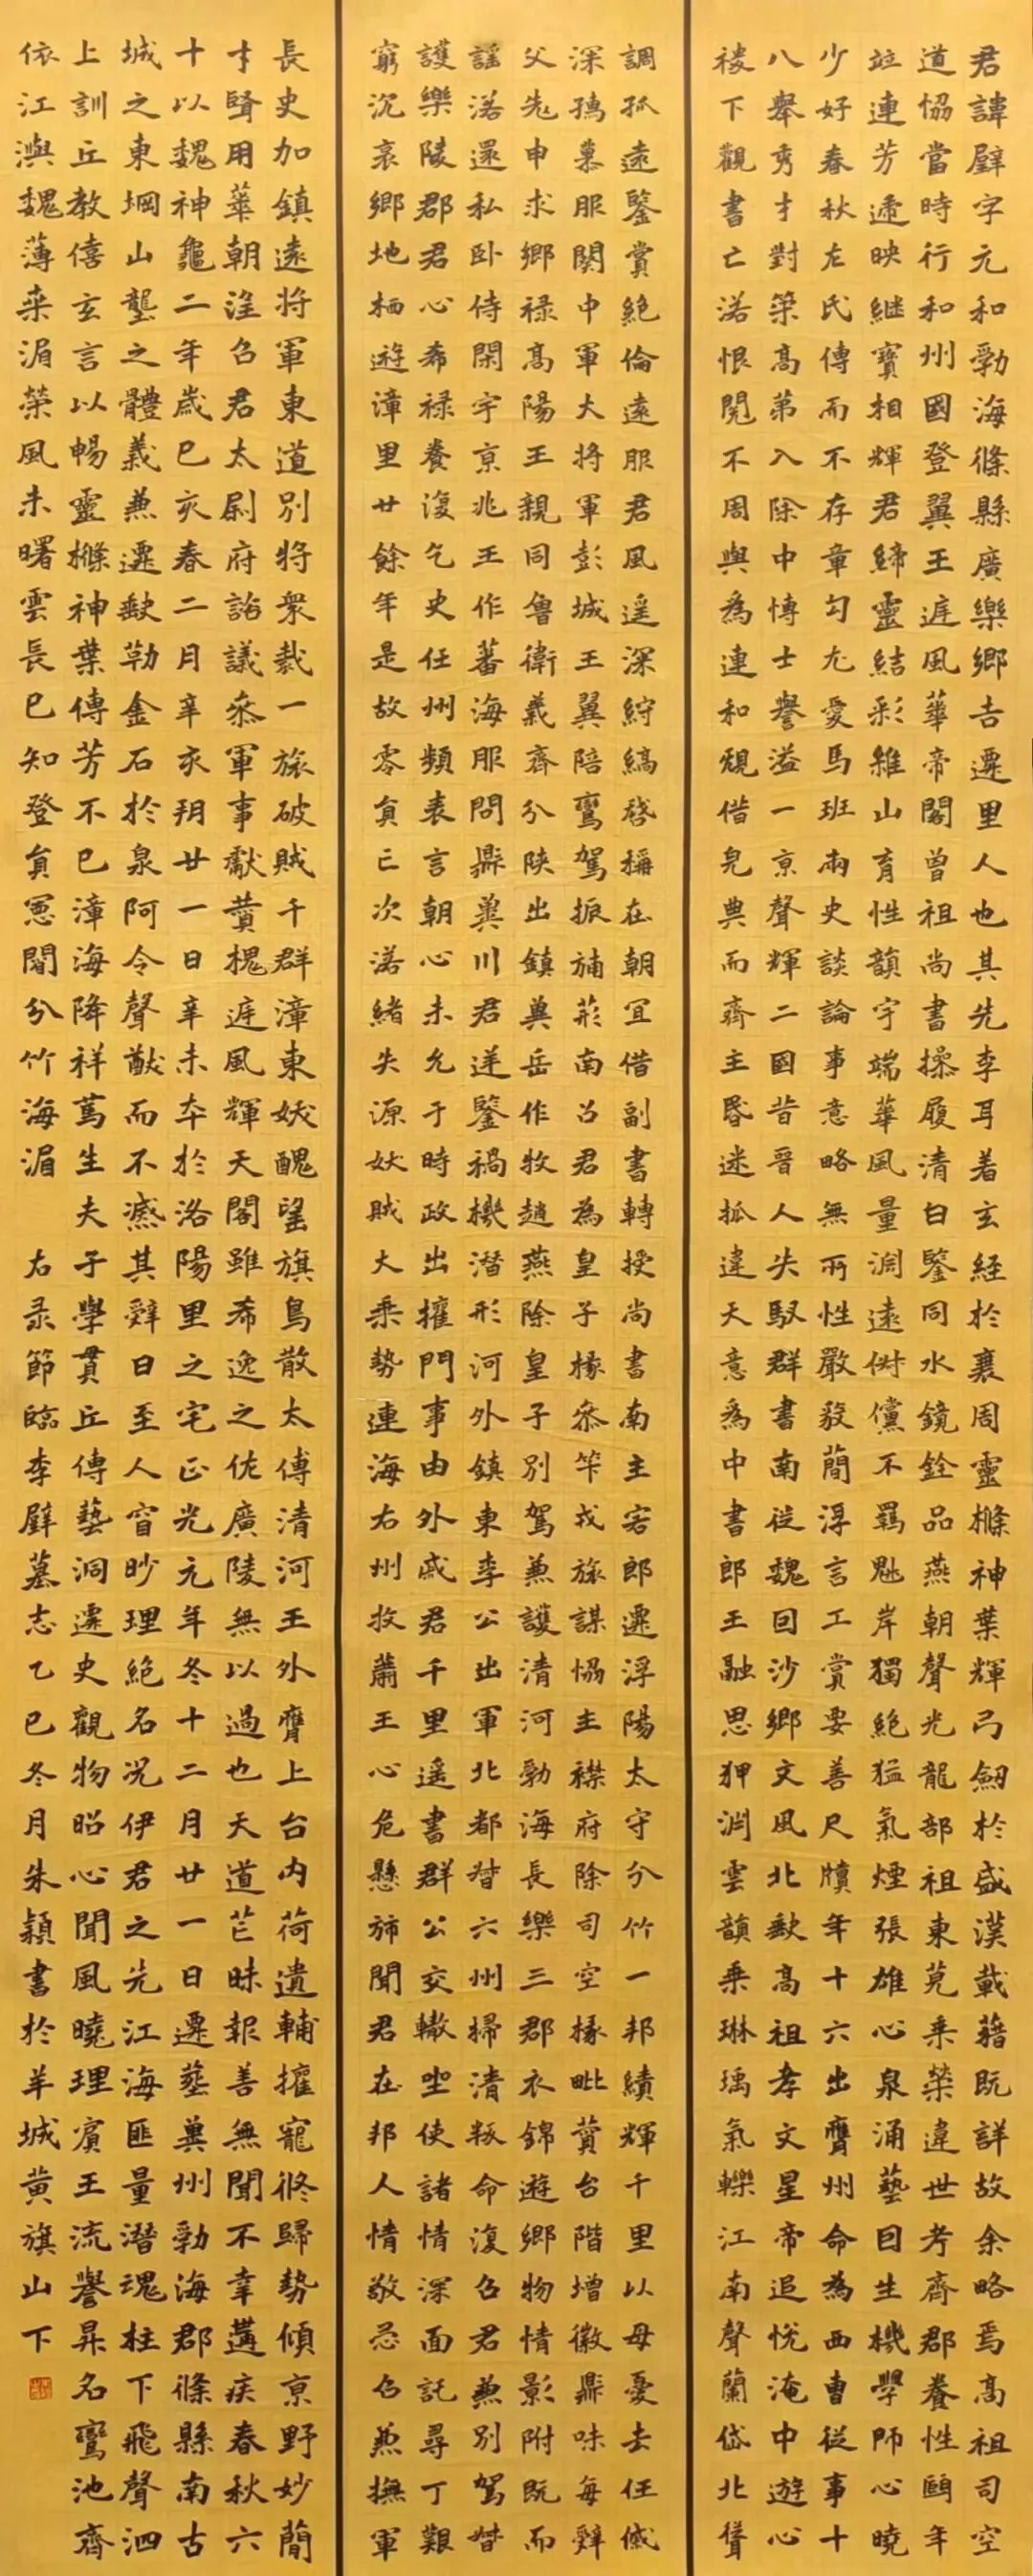 君諱壁字元和勃海條縣廣樂鄉吉遷里人也其先李耳著玄經於襄周靈樤神葉輝弓劒於盛漢載藉既詳故余略焉高祖司空
道恊當時行和州國登翼王遅風華帝閣曾祖尚書操履清白鑒同水鏡銓品燕朝聲光龍部祖東莞乘榮違世考齊郡養性頤年
竝連芳遞映継寶相輝君締靈結彩維山育性韻宇端華風量淵遠倜儻不羈魁岸獨絕猛氣煙張雄心泉涌藝因生機學師心曉
少好春秋左氏傳而不存章勾尤愛馬班兩史談論事意略無所性嚴毅簡浮言工賞要善尺牘年十六出膺州命為西曹從事十
八舉秀才對策高第入除中博士譽溢一京聲輝二國昔晉人失馭群書南從魏回沙鄉文風北缺高祖孝文星帝追悅淹中遊心
稷下觀書亡落恨閱不周與為連和規借完典而齊主昏迷孤違天意為中書郎王融思狎淵雲韻乘琳瑀氣轢江南聲蘭岱北聳
調孤遠鑒賞絕倫遠服君風遥深紵縞啓稱在朝宜借副書轉授尚書南主客郎遷浮陽太守分竹一邦績輝千里以母憂去任慽
深孺慕服闋中軍大將軍彭城王翼陪鸞駕振旆荊南召君為皇子掾叅筞戎旅謀恊主襟府除司空掾毗賛台階增徽鼎味每辭
父兂申求鄉禄高陽王親同魯衛義齊分陝出鎮冀岳作牧趙燕除皇子別駕兼護清河勃海長樂三郡衣錦遊鄉物情影附既而
謡落還私卧侍閑宇京兆王作蕃海服問鼎冀川君逆鑒禍機潜形河外鎮東李公出軍北都督六州掃清叛命復召君兼別駕督
護樂陵郡君心希禄養復乞史任州頻表言朝心未允于時政出擁門事由外戚君千里遥書群公交轍坐使諸情深面託尋丁艱
窮沉哀鄉地栖遊漳里廿餘年是故零負亡次落緒失源妖賊大乘勢連海右州牧蕭王心危懸斾聞君在邦人情敬忌召兼撫軍
長史加鎮遠将軍東道別將衆裁一旅破賊千群漳東妖醜望旗鳥散太傅清河王外膺上台内荷遺輔擁寵脩歸勢傾京野妙簡
才賢用華朝望召君太尉府諮議叅軍事獻賛槐遅風輝天閣雖希逸之佐廣陵無以過也天道芒昧報善無聞不幸遘疾春秋六
十以魏神龜二年歲巳亥春二月辛亥朔廿一日辛未卒於洛陽里之宅正光元年冬十二月廿一日遷塟冀州勃海郡條縣南古
城之東堈山壟之體義兼遷缺勒金石於泉阿令聲猷而不㵝其辭曰至人窅眇理絕名况伊君之先江海匪量潜魂柱下飛聲泗
上訓丘教僖玄言以暢靈樤神葉傳芳不已漳海降祥篤生夫子學貫丘傳藝洞遷史觀物昭心聞風曉理賓王流譽昇名鸞池齊
依江澳魏薄乘湄榮風未曙雲長已知登負宽闇分竹海湄 右录節臨李壁墓志乙巳冬月朱穎書於羊城黄旗山下